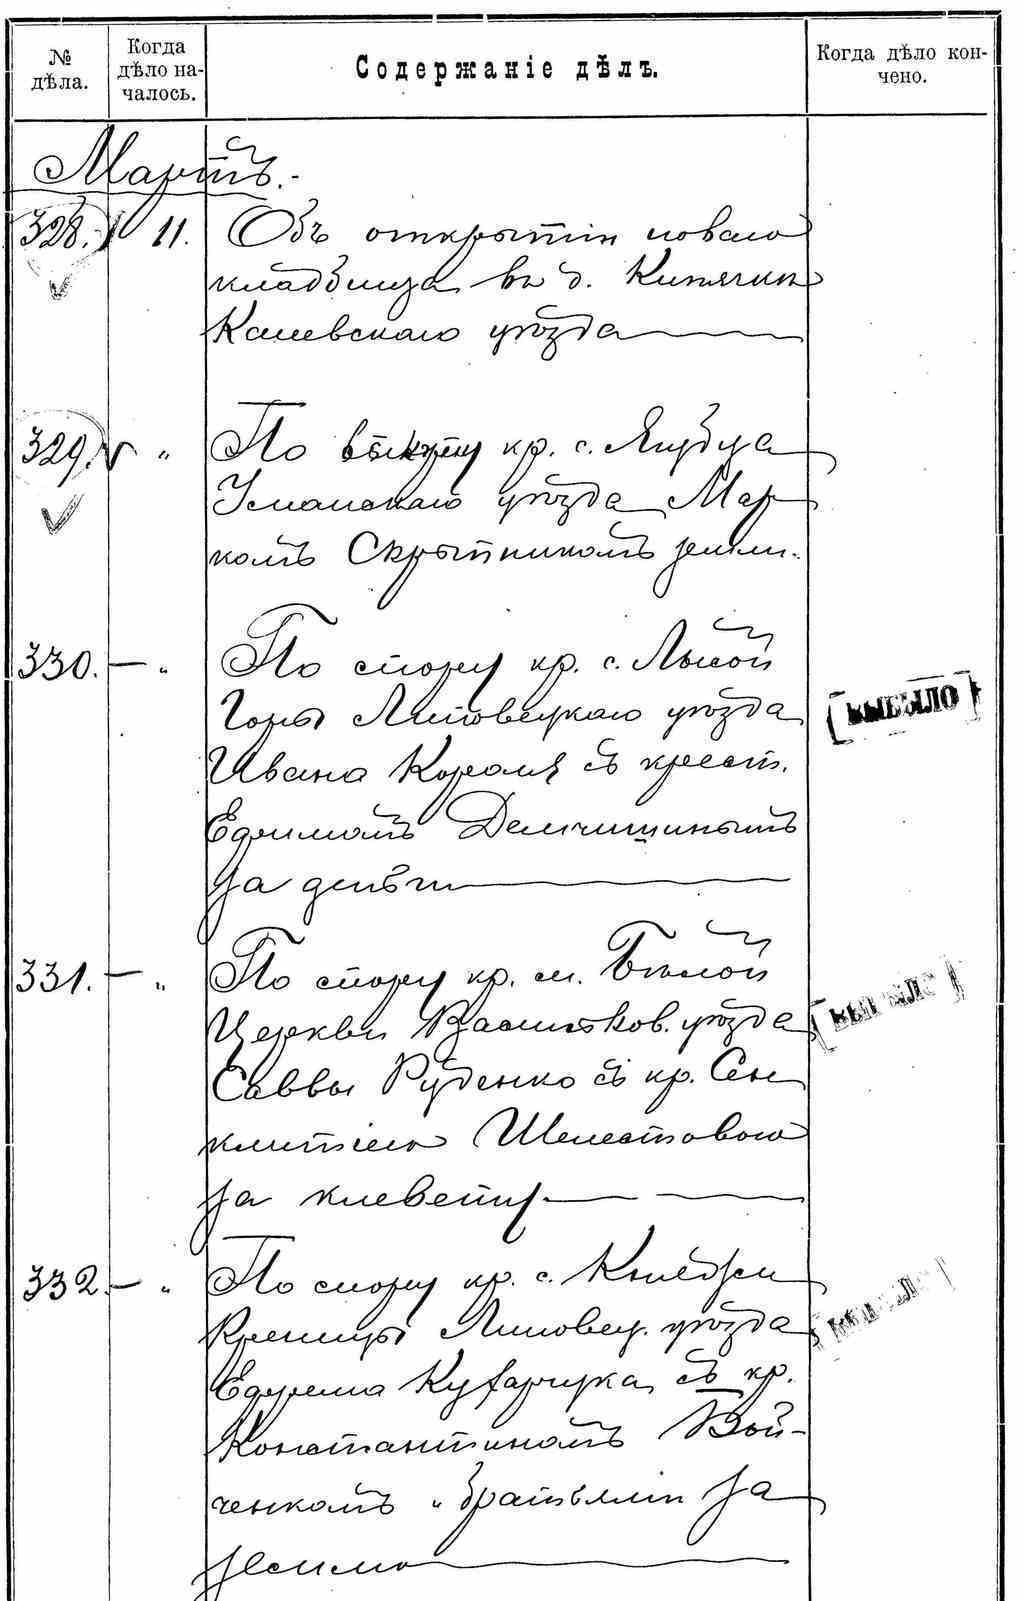 № дѣла.
Когда дѣло началось.
Содержаніе дѣлъ.
Когда дѣло кончено.
Мартъ.
328. 11. Объ открытіи новаго
кладбища въ д. Кипячкѣ
Каневскаго уѣзда
329. „ По выкупу кр. с. Якубца
Уманскаго уѣзда Мар
комъ Скрытникомъ земли.
330. — „ По спору кр. с. Лысой
Горы Липовецкаго уѣзда
Ивана Короля съ крест.
Ефимомъ Демчишинымъ
за деньги
ВЫБЫЛО
331. — „ По спору кр. м. Бѣлой
Церкви Васильков. уѣзда
Саввы Руденко съ кр. Син
клитіею Шелестовою
за клевету.
ВЫБЫЛО
332. — „ По спору кр. с. Княжей
Криницы Липовец. уѣзда
Ефрема Кухарчука съ кр.
Константиномъ Вой-
ченкомъ и братьями за
землю
ВЫБЫЛО